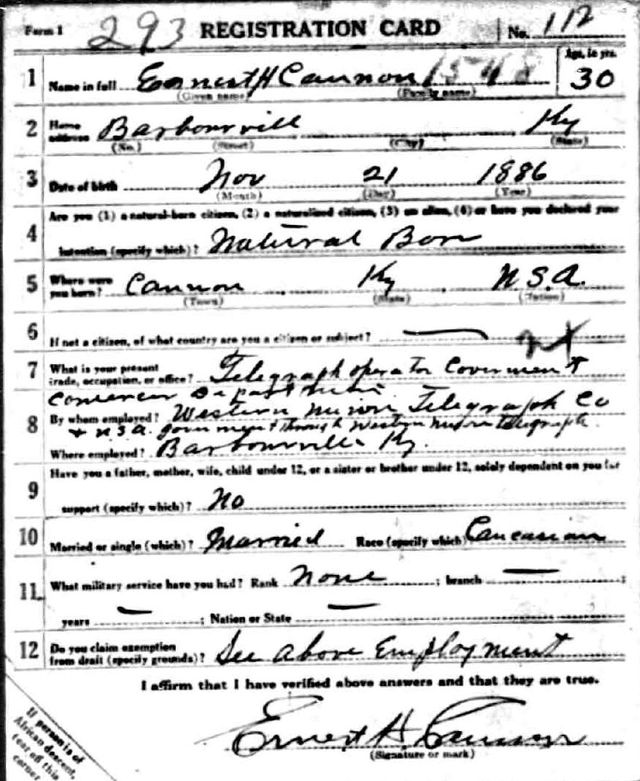 Form 1 293 REGISTRATION CARD No. 112
1 Name in full Earnest H Cannon 1548 Age, in yrs. 30
(Given name) (Family name)
2 Home address Barbourvill Ky
(No.) (Street) (City) (State)
3 Date of birth Nov 21 1886
(Month) (Day) (Year)
Are you (1) a natural-born citizen, (2) a naturalized citizen, (3) an alien, (4) or have you declared your
4 intention (specify which)? Natural Born
5 Where were you born? Cannon Ky U.S.A.
(Town) (State) (Nation)
6 If not a citizen, of what country are you a citizen or subject? —
7 What is your present trade, occupation, or office? Telegraph operator Government
Comercer Department
8 By whom employed? Western Union Telegraph Co
+ U.S.A. government through Western Union telegraph
Where employed? Barbourville Ky.
9 Have you a father, mother, wife, child under 12, or a sister or brother under 12, solely dependent on you for
support (specify which)? No
10 Married or single (which)? Married Race (specify which)? Caucasian
11 What military service have you had? Rank None ; branch — ;
years — ; Nation or State —
12 Do you claim exemption from draft (specify grounds)? See above Employment
I affirm that I have verified above answers and that they are true.
Ernest H Cannon
(Signature or mark)
If person is of
African descent,
tear off this
corner